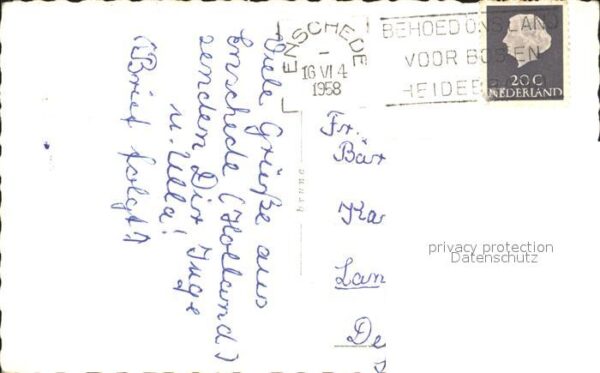 Viele Grüße aus
Enschede (Holland)
senden Dir Inge
u. Ulla!
(Brief folgt)
ENSCHEDE
16 VI 4
1958
BEHOED ONS LAND
VOOR BOS EN
20 C
NEDERLAND
Fr.
Bär
Ka
Lan
De
privacy protection
Datenschutz